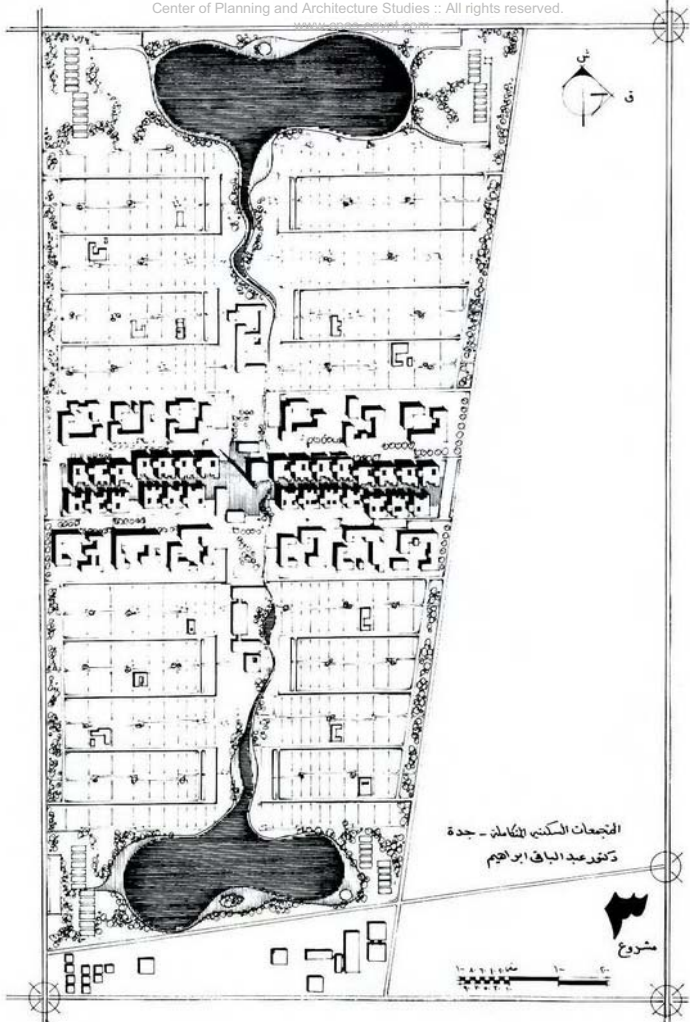 Center of Planning and Architecture Studies :: All rights reserved.
www.cpas-egypt.com
ش
ق
المجمعات السكنية المتكاملة - جدة
دكتور عبد الباقى ابراهيم
٣
مشروع